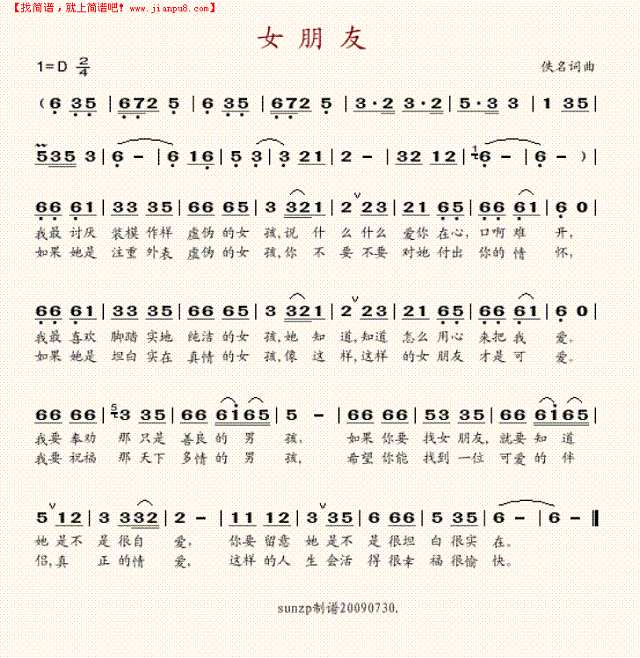 【找简谱，就上简谱吧! www.jianpu8.com】
女朋友
1=D 2/4
佚名词曲
( 6 35 | 672 5 | 6 35 | 672 5 | 3·2 3·2 | 5·3 3 | 1 35 |
535 3 | 6 - | 6 16 | 5 3 | 3 21 | 2 - | 32 12 | 1 6 - | 6 - ) |
66 61 | 33 35 | 66 65 | 3 321 | 2 ∨ 23 | 21 65 | 66 61 | 6 0 |
我最 讨厌 装模 作样 虚伪 的女 孩,说 什 么 什么 爱你 在心, 口啊 难 开,
如果 她是 注重 外表 虚伪 的女 孩,你 不 要 不要 对她 付出 你的 情 怀,
66 61 | 33 35 | 66 65 | 3 321 | 2 ∨ 23 | 21 65 | 66 61 | 6 0 |
我最 喜欢 脚踏 实地 纯洁 的女 孩,她 知 道,知道 怎么 用心 来把 我 爱。
如果 她是 坦白 实在 真情 的女 孩,像 这 样,这样 的女 朋友 才是 可 爱。
66 66 | 5 3 35 | 66 6i65 | 5 - | 66 66 | 53 35 | 66 6i65 |
我要 奉劝 那 只是 善良 的 男 孩, 如果 你要 找女 朋友, 就要 知道
我要 祝福 那 天下 多情 的 男 孩, 希望 你能 找到 一位 可爱 的 伴
5 ∨ 12 | 3 332 | 2 - | 11 12 | 3 ∨ 35 | 6 66 | 5 35 | 6 - | 6 - ‖
她 是不 是 很自 爱, 你要 留意 她 是不 是 很坦 白 很实 在。
侣,真 正 的情 爱, 这样 的人 生 会活 得 很幸 福 很愉 快。
sunzp制谱20090730.